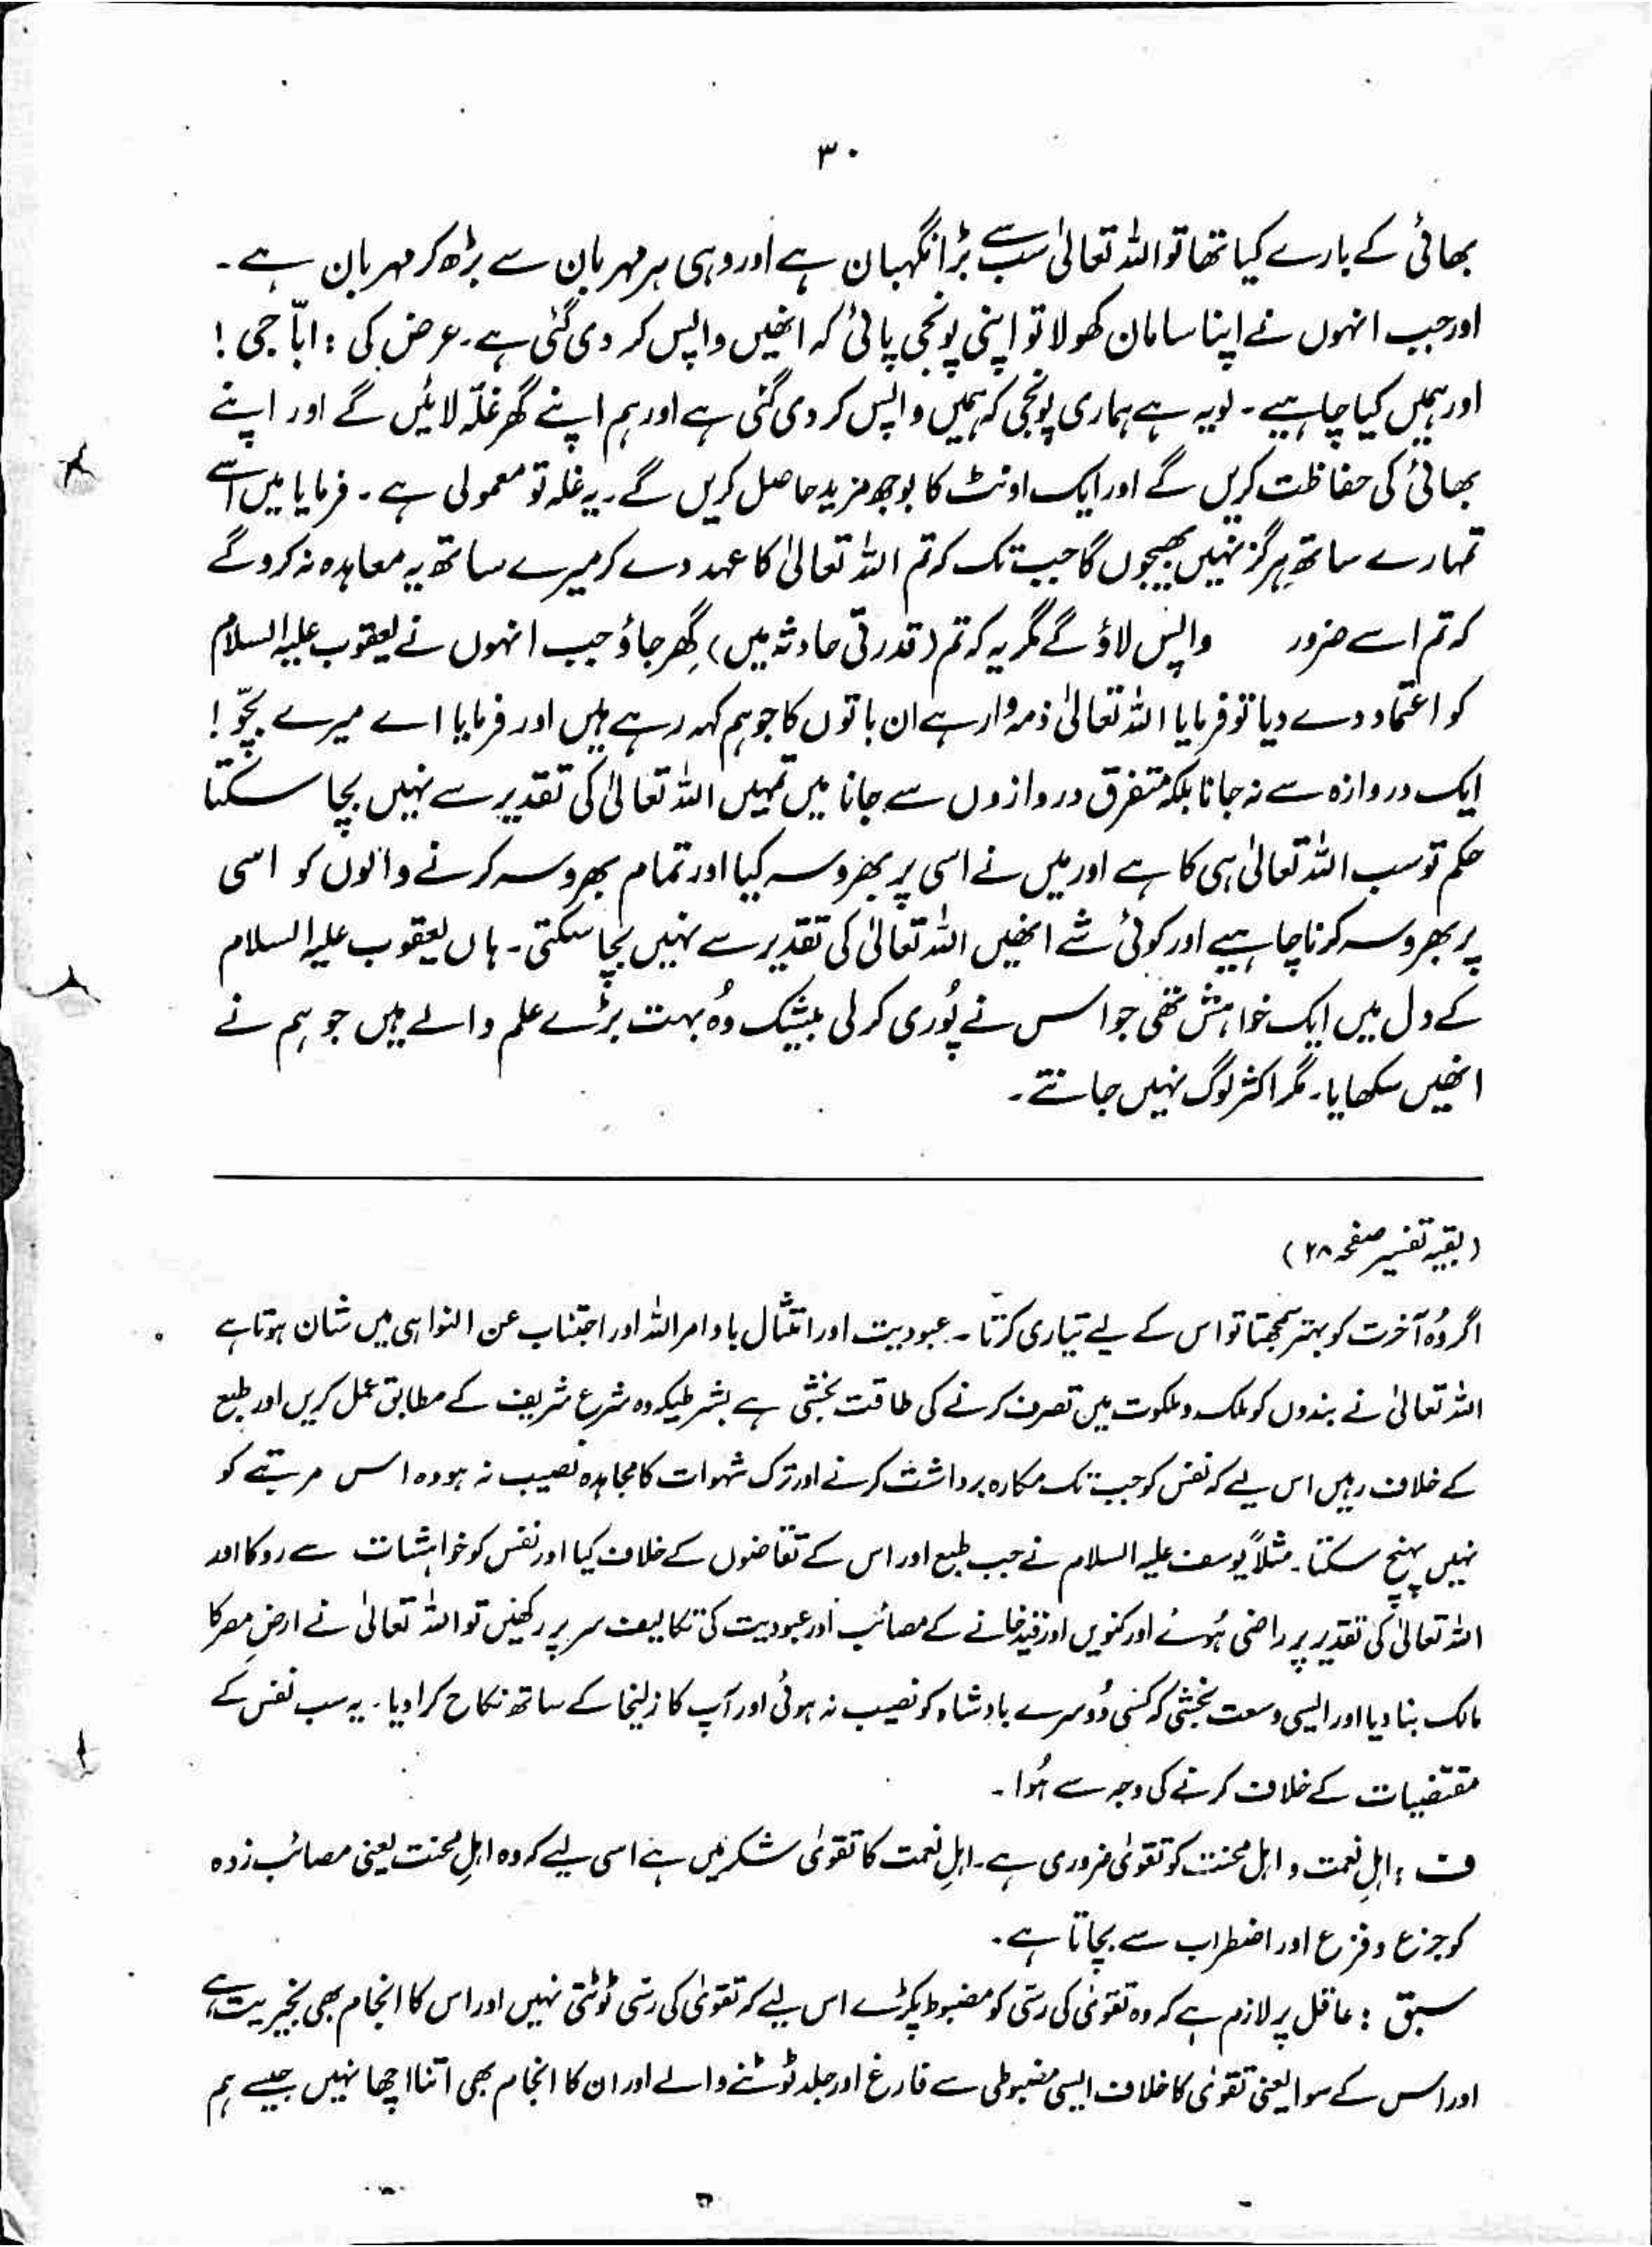 ۳۰
بھائی کے بارے کیا تھا تو اللہ تعالیٰ سب سے بڑا نگہبان ہے اور وہی ہر مہربان سے بڑھ کر مہربان ہے۔
اور جب انہوں نے اپنا سامان کھولا تو اپنی پونجی پائی کہ انھیں واپس کر دی گئی ہے۔ عرض کی : ابّا جی !
اور ہمیں کیا چاہیے۔ لو یہ ہے ہماری پونجی کہ ہمیں واپس کر دی گئی ہے اور ہم اپنے گھر غلّہ لائیں گے اور اپنے
بھائی کی حفاظت کریں گے اور ایک اونٹ کا بوجھ مزید حاصل کریں گے۔ یہ غلہ تو معمولی ہے۔ فرمایا میں اسے
تمہارے ساتھ ہرگز نہیں بھیجوں گا جب تک کہ تم اللہ تعالیٰ کا عہد دے کر میرے ساتھ یہ معاہدہ نہ کرو گے
کہ تم اسے ضرور واپس لاؤ گے مگر یہ کہ تم (قدرتی حادثہ میں) گھر جاؤ جب انہوں نے یعقوب علیہ السلام
کو اعتماد دے دیا تو فرمایا اللہ تعالیٰ ذمہ وار ہے ان باتوں کا جو ہم کہہ رہے ہیں اور فرمایا اے میرے بچّو !
ایک دروازہ سے نہ جانا بلکہ متفرق دروازوں سے جانا میں تمہیں اللہ تعالیٰ کی تقدیر سے نہیں بچا سکتا
حکم تو سب اللہ تعالیٰ ہی کا ہے اور میں نے اسی پر بھروسہ کیا اور تمام بھروسہ کرنے والوں کو اسی
پر بھروسہ کرنا چاہیے اور کوئی شے انھیں اللہ تعالیٰ کی تقدیر سے نہیں بچا سکتی۔ ہاں یعقوب علیہ السلام
کے دل میں ایک خواہش تھی جو اس نے پُوری کر لی بیشک وُہ بہت بڑے علم والے ہیں جو ہم نے
انھیں سکھایا۔ مگر اکثر لوگ نہیں جانتے۔
(بقیہ تفسیر صفحہ ۲۸)
اگر وُہ آخرت کو بہتر سمجھتا تو اس کے لیے تیاری کرتا۔ عبودیت اور امتثال باوامر اللہ اور اجتناب عن النواہی میں شان ہوتا ہے
اللہ تعالیٰ نے بندوں کو ملک و ملکوت میں تصرف کرنے کی طاقت بخشی ہے بشرطیکہ وہ شرع شریف کے مطابق عمل کریں اور طبع
کے خلاف رہیں اس لیے کہ نفس کو جب تک مکارہ برداشت کرنے اور ترک شہوات کا مجاہدہ نصیب نہ ہو وہ اس مرتبے کو
نہیں پہنچ سکتا۔ مثلاً یوسف علیہ السلام نے جب طبع اور اس کے تقاضوں کے خلاف کیا اور نفس کو خواہشات سے روکا اور
اللہ تعالیٰ کی تقدیر پر راضی ہُوئے اور کنویں اور قید خانے کے مصائب اور عبودیت کی تکالیف سر پر رکھیں تو اللہ تعالیٰ نے ارضِ مصر کا
مالک بنا دیا اور ایسی وسعت بخشی کہ کسی دُوسرے بادشاہ کو نصیب نہ ہوئی اور آپ کا زلیخا کے ساتھ نکاح کرا دیا۔ یہ سب نفس کے
مقتضیات کے خلاف کرنے کی وجہ سے ہُوا۔
ف : اہلِ نعمت و اہل محنت کو تقویٰ ضروری ہے۔ اہلِ نعمت کا تقویٰ شکر میں ہے اسی لیے کہ وہ اہلِ محنت یعنی مصائب زدہ
کو جزع و فزع اور اضطراب سے بچاتا ہے۔
سبق : عاقل پر لازم ہے کہ وہ تقویٰ کی رسّی کو مضبوط پکڑے اس لیے کہ تقویٰ کی رسّی ٹوٹتی نہیں اور اس کا انجام بھی بخیریت ہے
اور اس کے سوا یعنی تقویٰ کا خلاف ایسی مضبوطی سے فارغ اور جلد ٹوٹنے والے اور ان کا انجام بھی اتنا اچھا نہیں جیسے ہم